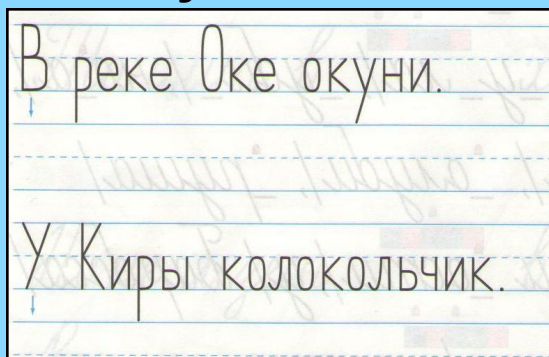 В реке Оке окуни.
У Киры колокольчик.